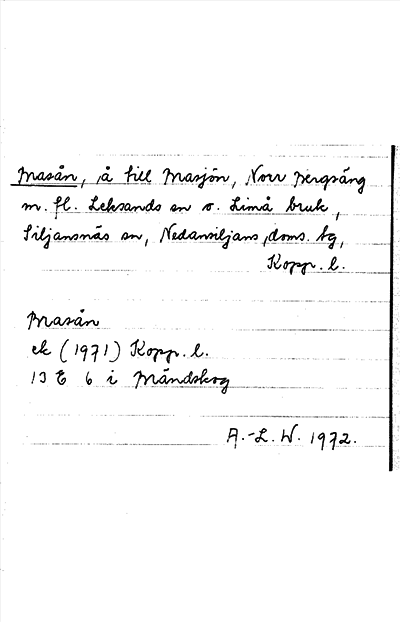 Masån, å till Masjön, Norr Bergsäng
m. fl. Leksands sn o. Limå bruk,
Siljansnäs sn, Nedansiljans doms. tg,
Kopp. l.
Masån
ek (1971) Kopp. l.
13 E 6 i Måndskog
A.-L. W. 1972.